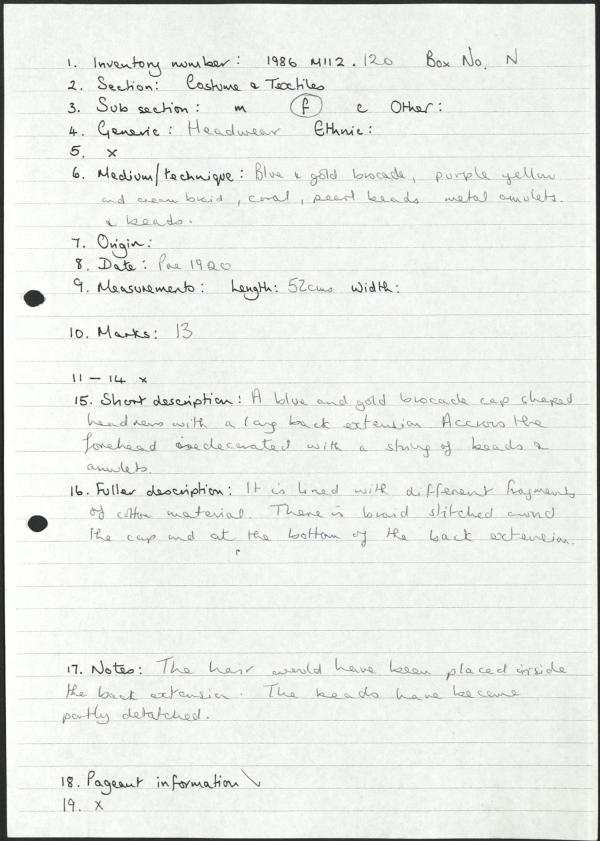 1. Inventory number: 1986 M112.120 Box No. N
2. Section: Costume & Textiles
3. Sub section: m f c Other:
4. Generic: Headwear Ethnic:
5. x
6. Medium/technique: Blue & gold brocade, purple yellow
and cream braid, coral, pearl beads metal amulets.
& beads.
7. Origin:
8. Date: Pre 1920
9. Measurements: Length: 52cms Width:
10. Marks: 13
11 - 14 x
15. Short description: A blue and gold brocade cap shaped
headress with a long back extension Accross the
forehead is decorated with a string of beads &
amulets.
16. Fuller description: It is lined with different fragments
of cotton material. There is braid stitched around
the cap and at the bottom of the back extension.
17. Notes: The hair would have been placed inside
the back extension. The beads have become
partly detatched.
18. Pageant information \
19. x